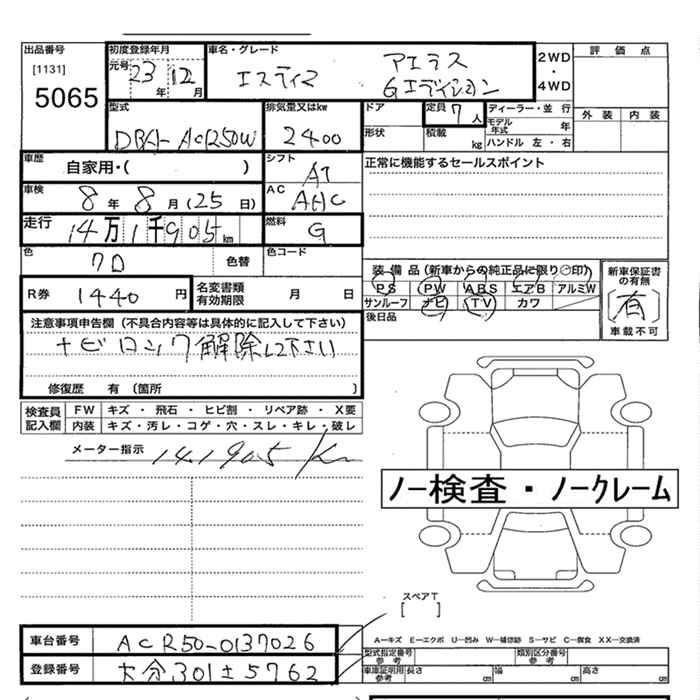 出品番号
[1131]
5065
初度登録年月
元号 23 年 12 月
車名・グレード
エスティマ アエラス
Gエディション
2WD
・
4WD
評価点
外装 内装
型式
DBA-ACR50W
排気量又はkw
2400
ドア
形状
定員 7 人
積載 kg
ディーラー・並 行
モデル年式 年
ハンドル 左・右
車歴
自家用・( )
シフト
AT
車検
8 年 8 月 (25 日)
AC
AAC
正常に機能するセールスポイント
走行
14万1千905km
燃料
G
色
色替
色コード
R券 1440 円
名変書類
有効期限 月 日
装備品(新車からの純正品に限り○印)
PS PW ABS エアB アルミW
サンルーフ ナビ TV カワ
後日品
新車保証書
の有無
[有]
車載不可
注意事項申告欄(不具合内容等は具体的に記入して下さい)
ナビロック解除して下さい
修復歴 有(箇所 )
検査員
記入欄
FW キズ・飛石・ヒビ割・リペア跡・X要
内装 キズ・汚レ・コゲ・穴・スレ・キレ・破レ
メーター指示 141905 Km
ノー検査・ノークレーム
スペアT
[ ]
A—キズ E—エクボ U—凹み W—補修跡 S—サビ C—腐食 XX—交換済
車台番号 ACR50-0137026
登録番号 大分301 5762
型式指定番号
参考
類別区分番号
参考
車庫証明用
参考
長さ cm 幅 cm 高さ cm